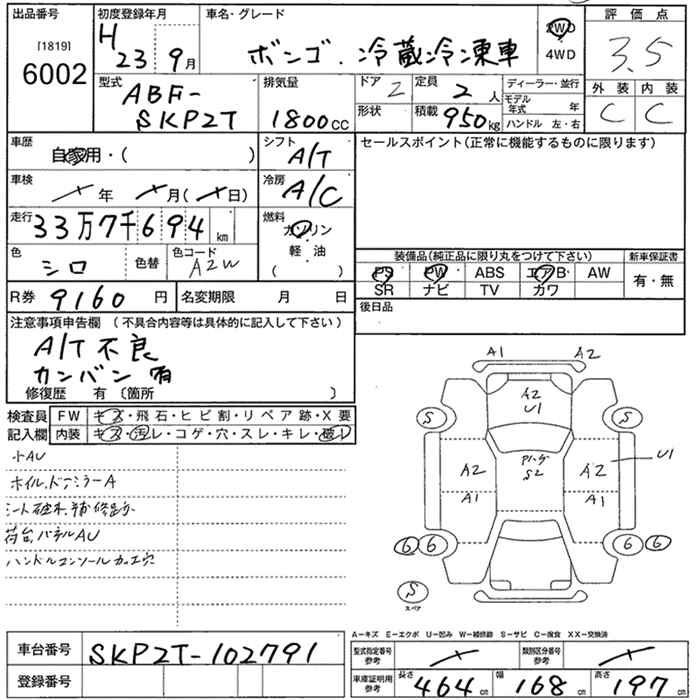 出品番号
[1819]
6002
初度登録年月
H 23 9月
車名・グレード
ボンゴ 冷蔵冷凍車
2WD
4WD
評価点
3.5
外装 内装
C C
型式
ABF-
SKP2T
排気量
1800cc
ドア 2
形状
定員 2人
積載 950kg
ディーラー・並行
モデル年式 年
ハンドル 左・右
車歴
自家用・( )
シフト
A/T
車検
年 月( 日)
冷房
A/C
走行
33万7千694km
燃料
ガソリン
軽・油
( )
色
シロ
色替
色コード
A2W
R券 9160円
名変期限 月 日
セールスポイント(正常に機能するものに限ります)
装備品(純正品に限り丸をつけて下さい)
新車保証書
PS PW ABS エアB AW
SR ナビ TV カワ
有・無
後日品
注意事項申告欄 (不具合内容等は具体的に記入して下さい)
A/T 不良
カンバン 有
修復歴 有 〔箇所 〕
検査員記入欄
FW キズ・飛石・ヒビ割・リペア跡・X要
内装 キズ・汚レ・コゲ・穴・スレ・キレ・破レ
小AU
ホイル、ドアミラーA
荷台、パネルAU
ハンドルコンソール加工穴
A1 A2
A2
U1
S S
S2
A2 A2 U1
A1 A1
6 6 6 6
S
スペア
A−キズ E−エクボ U−凹み W−補修跡 S−サビ C−腐食 XX−交換済
車台番号 SKP2T-102791
登録番号
型式指定番号 参考
類別区分番号 参考
車庫証明用 参考
長さ 464cm 幅 168cm 高さ 197cm